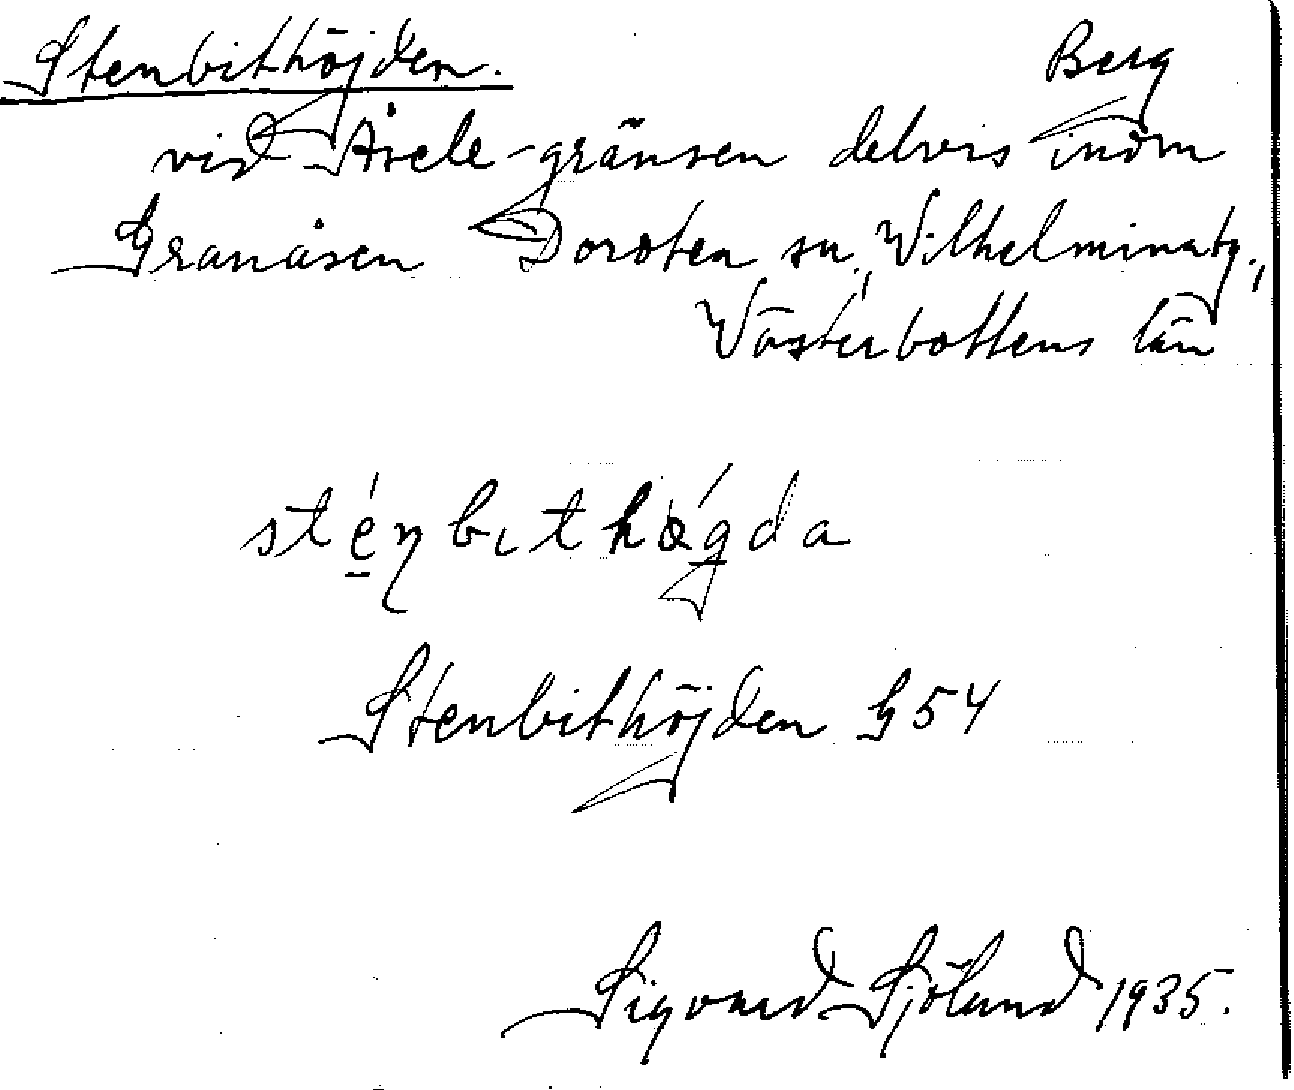 Stenbithöjden. Berg
vid Åsele-gränsen delvis inom
Granåsen Dorotea sn, Vilhelmina tg.,
Västerbottens län
sté̠ŋbıthǿg̠da
Stenbithöjden G 54
Sigvard Sjölund 1935.